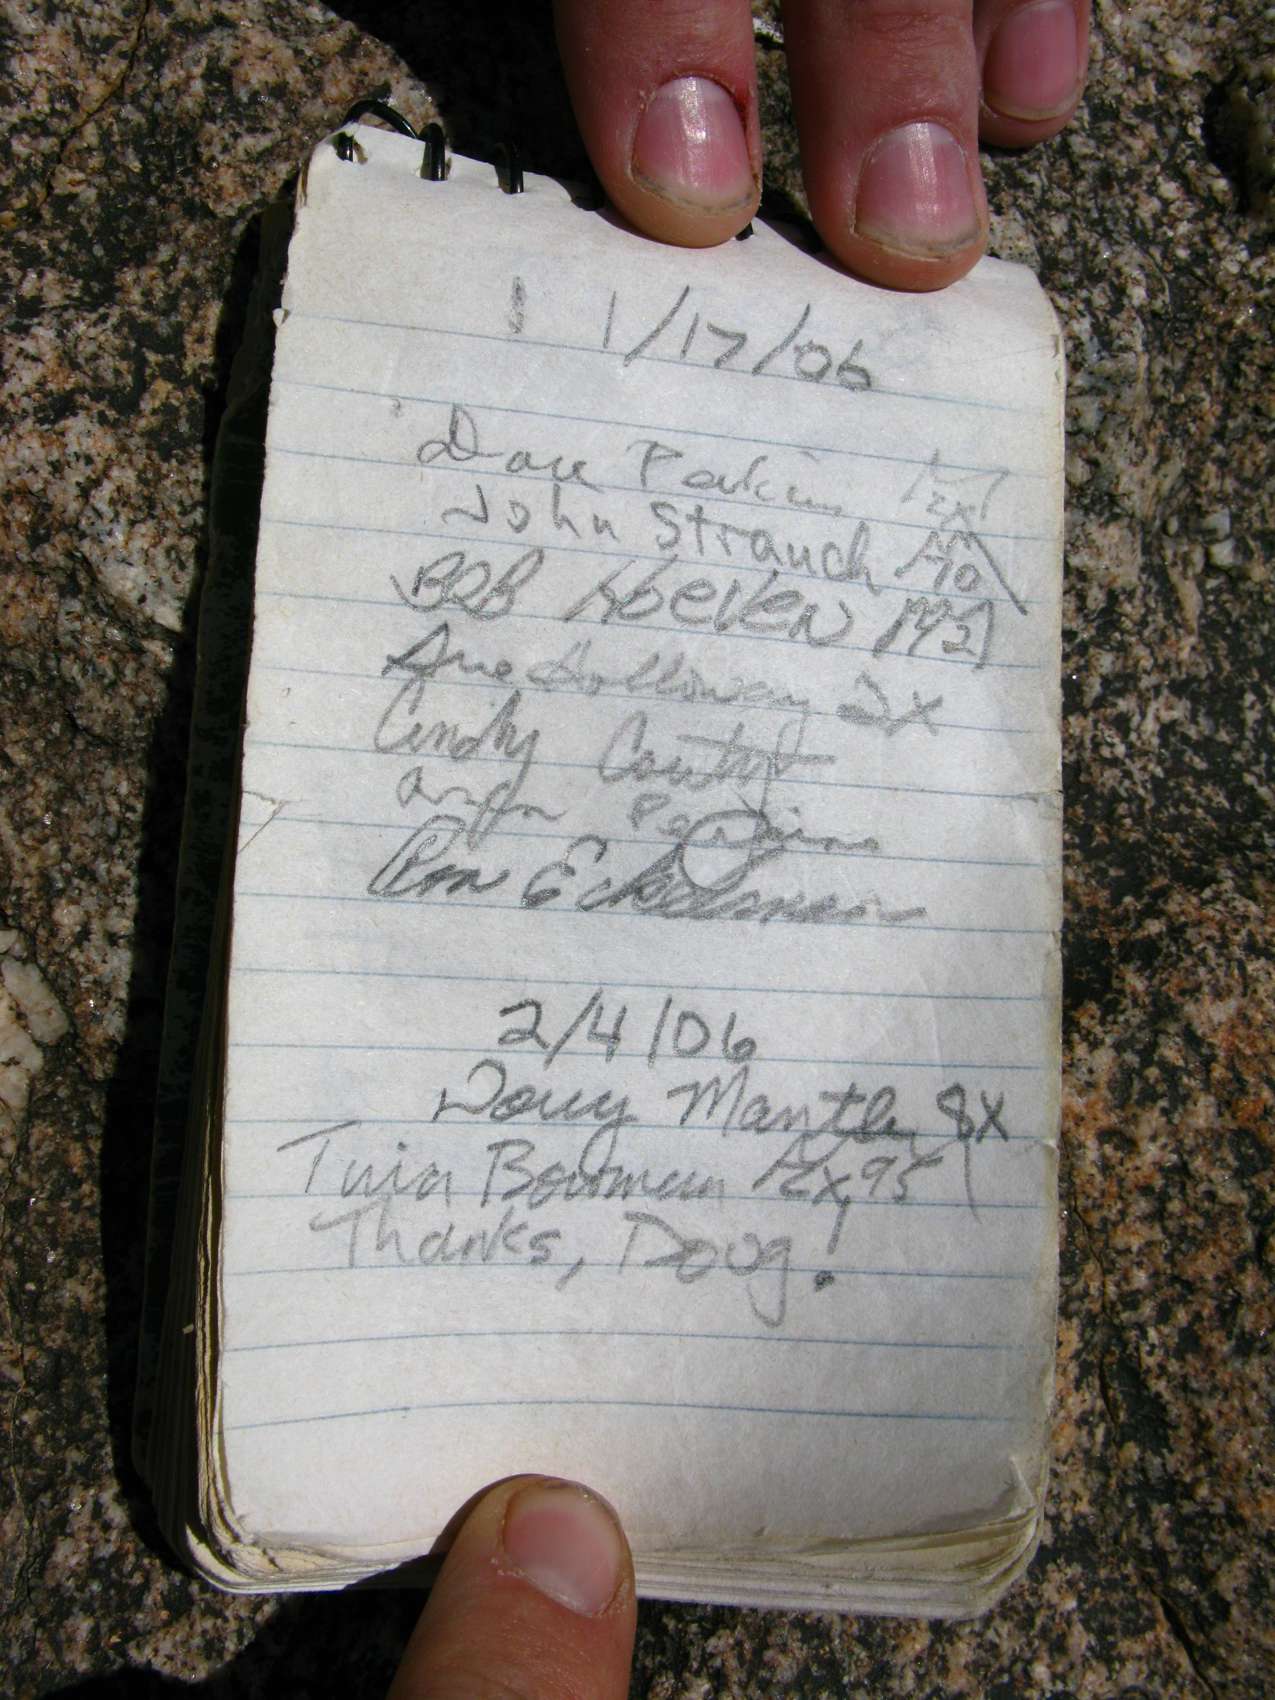 1/17/06
Dave Perkins
John Strauch
BOB Hoeven
Sue Holloway 2X
Cindy
Perkins
Ron Eckelmann
2/4/06
Doug Mantle 8X
Tina Bowman 95
Thanks, Doug!